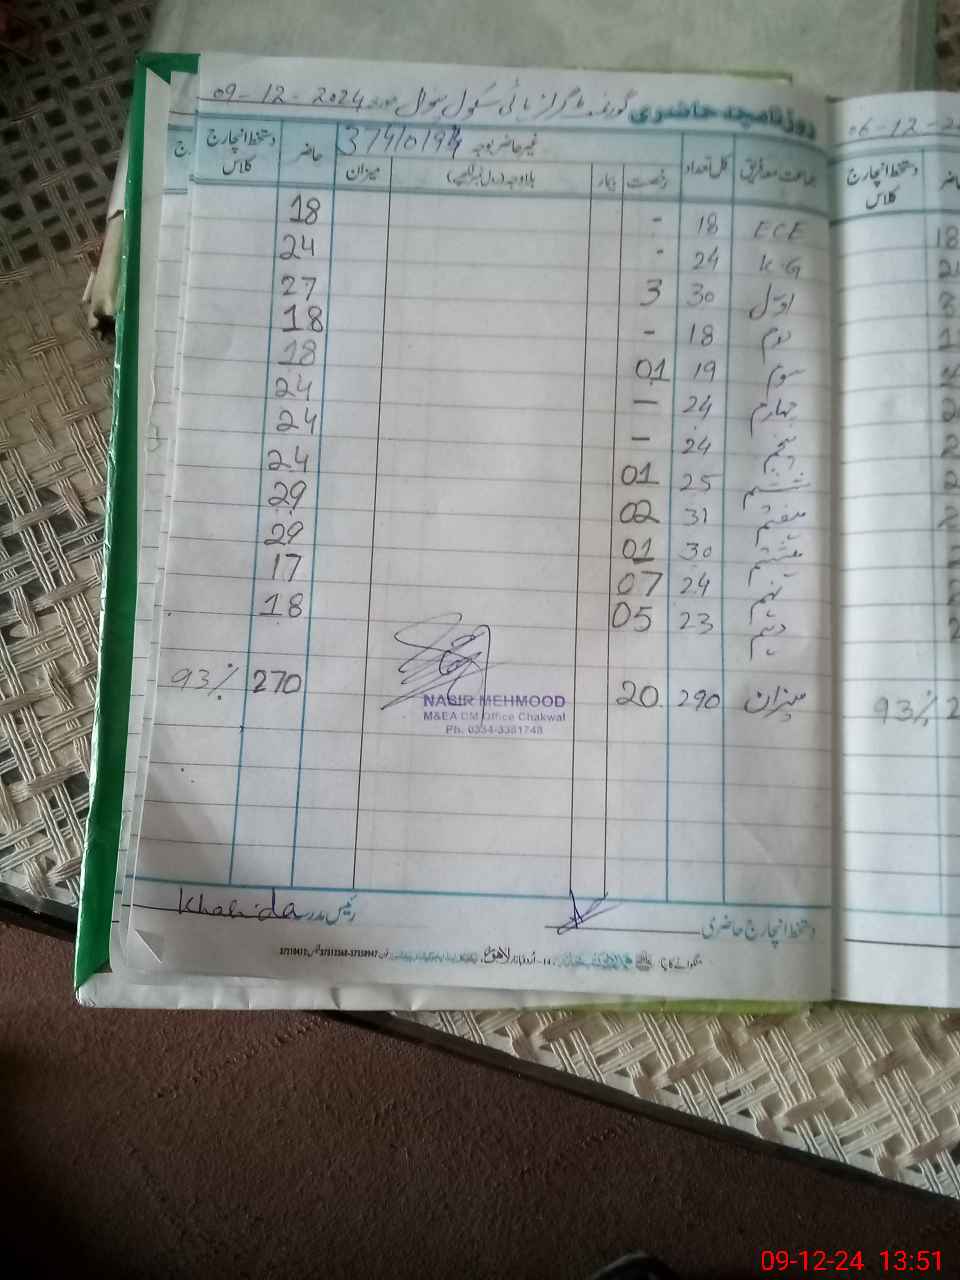 روزنامچہ حاضری گورنمنٹ گرلز ہائی سکول سوال مورخہ 09-12-2024
جماعت معہ فریق کل تعداد غیر حاضر بوجہ حاضر دستخط انچارج کلاس
رخصت بیمار بلاوجہ (رول نمبر لکھیے) میزان
ECE 18 - 18
K-G 24 - 24
اول 30 3 27
دوم 18 - 18
سوم 19 01 18
چہارم 24 - 24
پنجم 24 - 24
ششم 25 01 24
ہفتم 31 02 29
ہشتم 30 01 29
نہم 24 07 17
دہم 23 05 18
میزان 290 20 270 93%
NASIR MEHMOOD
M&EA DM Office Chakwal
Ph. 0334-3381748
دستخط انچارج حاضری
رئیس مدرسہ Khalida
06-12-20
دستخط انچارج کلاس
93%
09-12-24 13:51